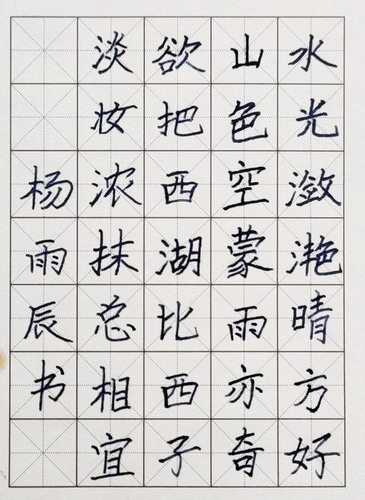 水光潋滟晴方好
山色空蒙雨亦奇
欲把西湖比西子
淡妆浓抹总相宜
杨雨辰书